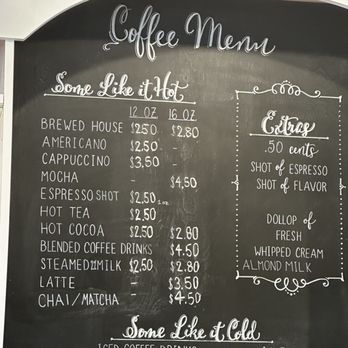 Coffee Menu
Some Like it Hot
12 OZ 16 OZ
BREWED HOUSE $2.50 $2.80
AMERICANO $2.50 -
CAPPUCCINO $3.50 -
MOCHA - $4.50
ESPRESSO SHOT $2.50
HOT TEA $2.50 -
HOT COCOA $2.50 $2.80
BLENDED COFFEE DRINKS $4.50
STEAMED MILK $2.50 $2.80
LATTE - $3.50
CHAI/MATCHA - $4.50
Extras
.50 cents
SHOT of ESPRESSO
SHOT of FLAVOR
DOLLOP of
FRESH
WHIPPED CREAM
ALMOND MILK
Some Like it Cold
ICED COFFEE DRINKS